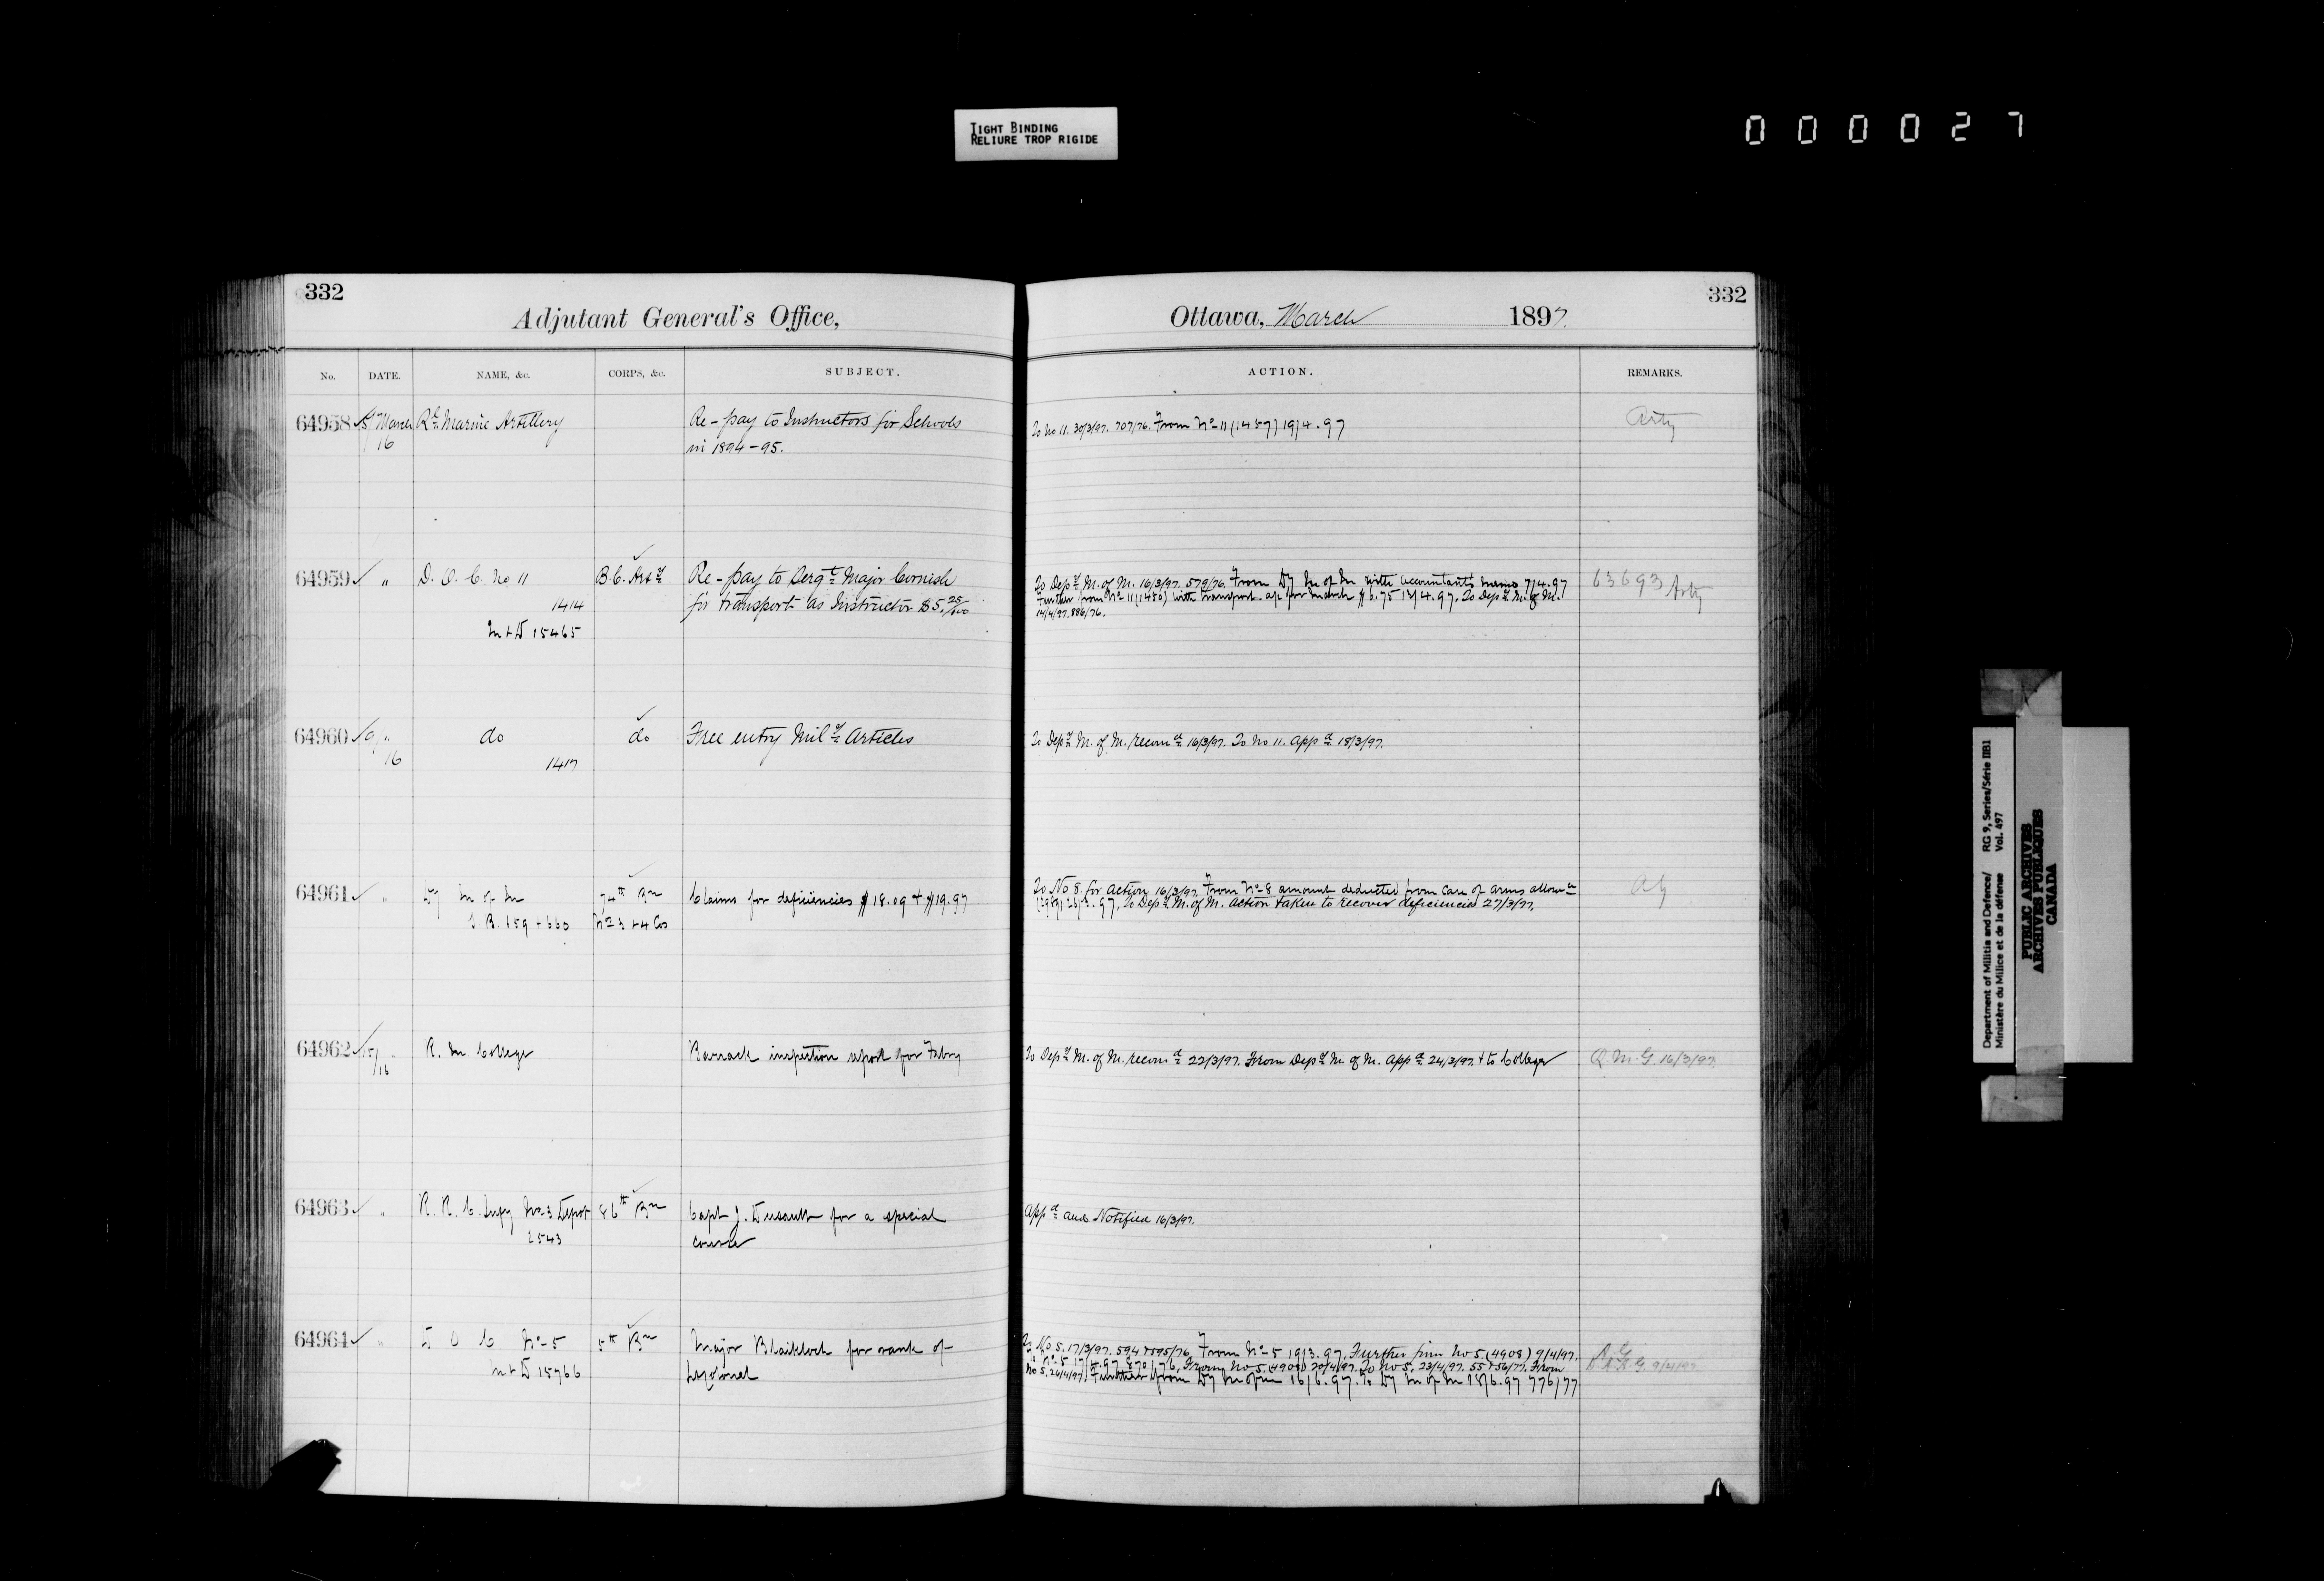 TIGHT BINDING
RELIURE TROP RIGIDE
000027
332
Adjutant General's Office,
No. DATE. NAME, &c. CORPS, &c. SUBJECT.
64958 March 16 Rl Marine Artillery Re-pay to Instructors for Schools
in 1894-95.
64959 " D.O.C. No 11 B.C. Arty Re-pay to Sergt Major Cornish
1414 for transport as Instructor $5.25/100
M&D 15465
64960 " 16 do do Free entry Mily Articles
1417
64961 " Dy M of M 74th Bn Claims for deficiencies $18.09 & $19.97
S B. 159 & 660 No 3 & 4 Cos
64962 15/16 " R. M College Barrack inspection report for Febry
64963 " R.R.C. Infy No 3 Depot 86th Bn Capt J. Dusault for a special
2543 course
64964 " D O C No 5 5th Bn Major Blaiklock for rank of
M&D 15766 Lt Colonel
332
Ottawa, March 1897.
ACTION. REMARKS.
To No 11. 30/3/97. 707/76. From No 11 (1457) 19/4.97 Arty
To Depy M. of M. 16/3/97. 579/76. From Dy M of M with accountants memo 7/4.97 63693 Arty
Further from No 11 (1450) with transport a/c for March $6.75 13/4.97. To Depy M. of M.
14/4/97. 886/76.
To Depy M. of M. recomd 16/3/97. To No 11. Appd 18/3/97.
To No 8. for action 16/3/97. From No 8 amount deducted from care of arms allowce AG
26/3.97. To Depy M. of M. action taken to recover deficiencies 27/3/97.
To Depy M. of M. recomd 22/3/97. From Depy M. of M. Appd 24/3/97. & to College Q.M.G. 16/3/97.
Appd and Notified 16/3/97.
To No 5. 17/3/97. 594 & 595/76. From No 5 19/3.97. Further from No 5 (4908) 9/4/97. A.G.
To No 5 17/4.97 870/76. From No 5. (4908) 20/4/97. To No 5. 23/4/97. 55 & 56/77. From 9/4/97
No 5. 26/4/97. Further from Dy M of M 16/6.97. To Dy M of M 18/6.97 776/77
Department of Militia and Defence/ RG 9, Series/Série IIB1
Ministère du Milice et de la défense Vol. 497
PUBLIC ARCHIVES
ARCHIVES PUBLIQUES
CANADA